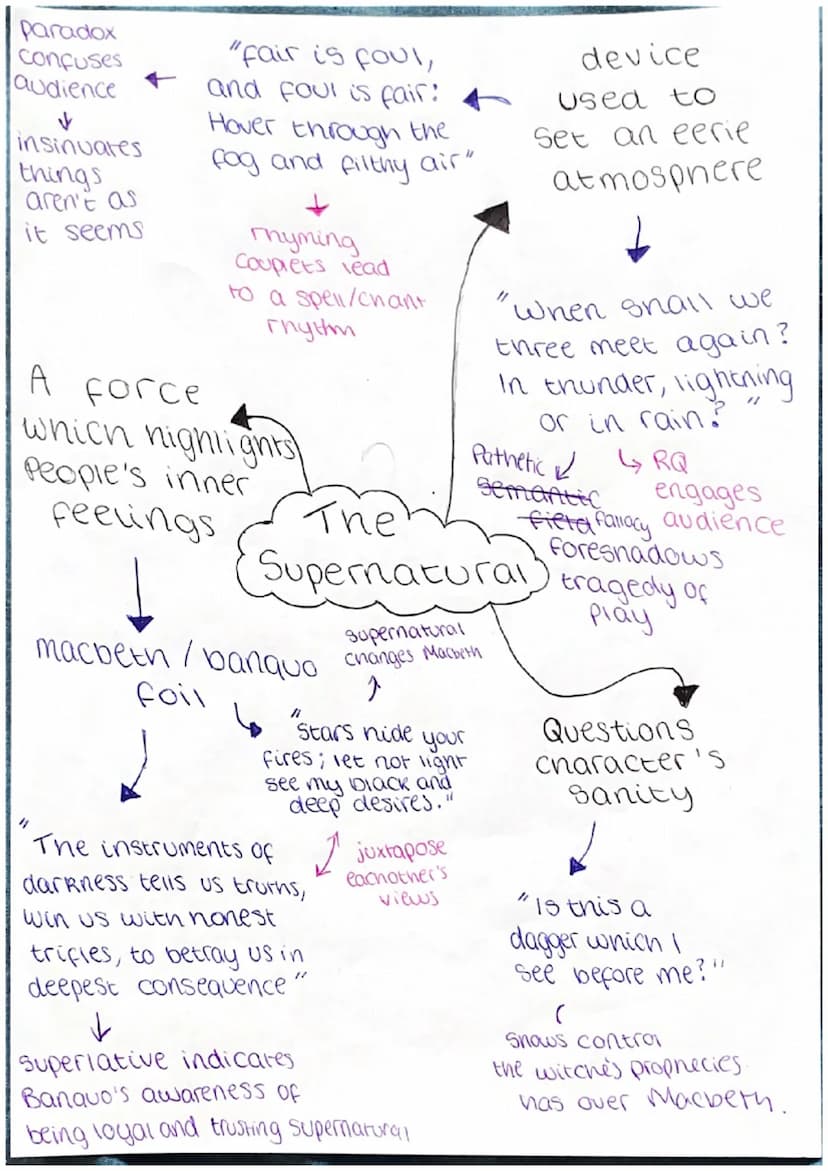 The
Supernatural
device
used to
set an eerie
atmosphere
"fair is foul,
and foul is fair:
Hover through the
fog and filthy air"
paradox
confuses
audience
insinuates
things
aren't as
it seems
rhyming
couplets lead
to a spell/chant
rhythm
"When shall we
three meet again?
In thunder, lightning
or in rain?"
Pathetic
semantic
field fallacy
foreshadows
tragedy of
play
RQ
engages
audience
A force
which highlights
People's inner
feelings
macbeth / banquo
foil
"Stars hide your
fires; let not light
see my black and
deep desires."
supernatural
changes Macbeth
juxtapose
eachother's
views
"The instruments of
darkness tells us truths,
win us with honest
trifles, to betray us in
deepest consequence"
superlative indicates
Banquo's awareness of
being loyal and trusting supernatural
Questions
character's
sanity
"Is this a
dagger which I
see before me?"
shows control
the witche's prophecies
has over Macbeth.